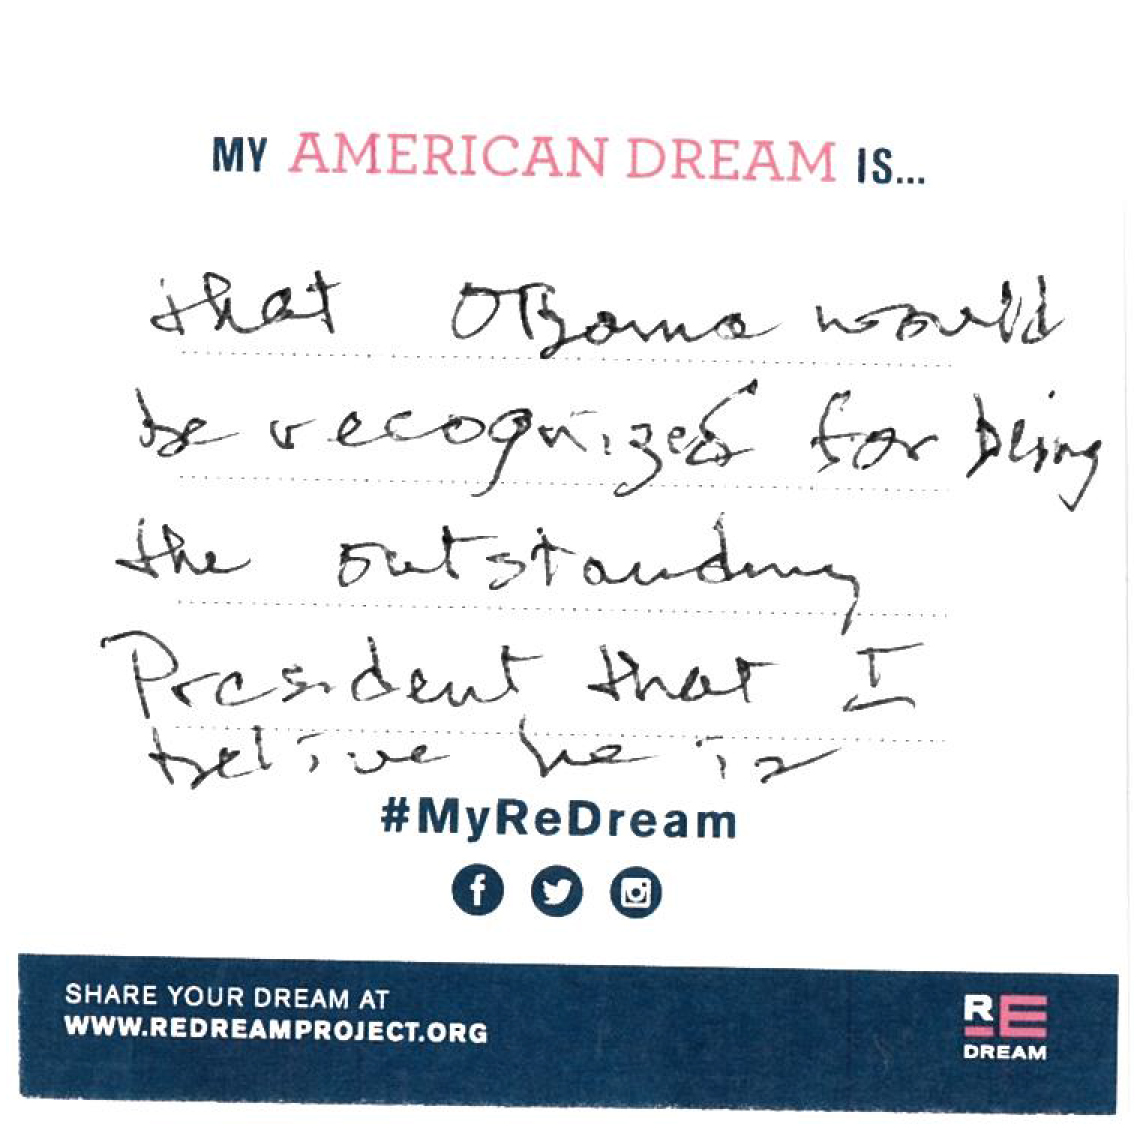 MY AMERICAN DREAM IS...
that OBama would
be recognized for being
the outstanding
President that I
belive he is
#MyReDream
SHARE YOUR DREAM AT
WWW.REDREAMPROJECT.ORG
RE
DREAM